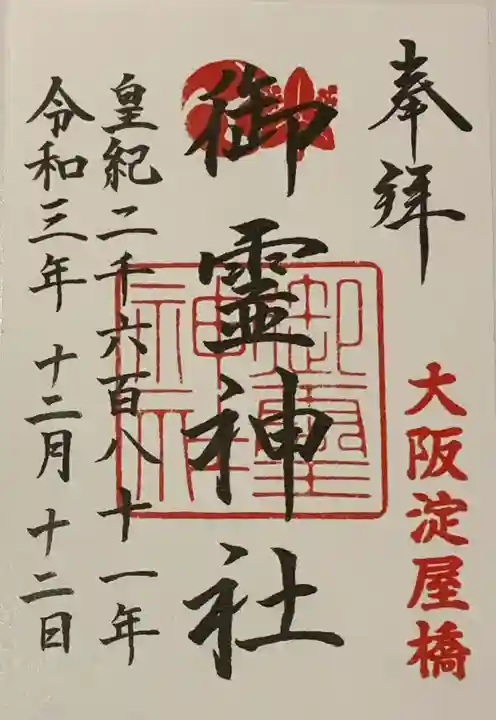 奉拝
大阪淀屋橋
御霊神社
御霊神社
皇紀二千六百八十一年
令和三年 十二月 十二日